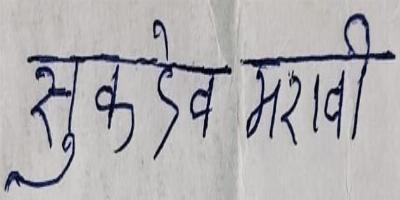 सुकदेव मरावी